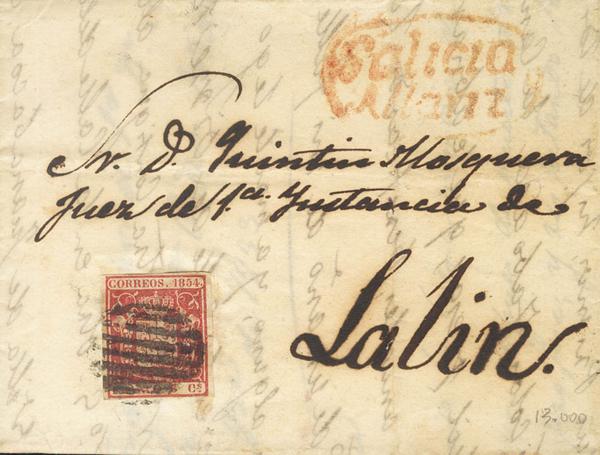 Galicia
Allariz
Sr. D. Quintin Mosquera
Juez de 1.a Instancia de
Lalin.
CORREOS. 1854.
Cs
13.000